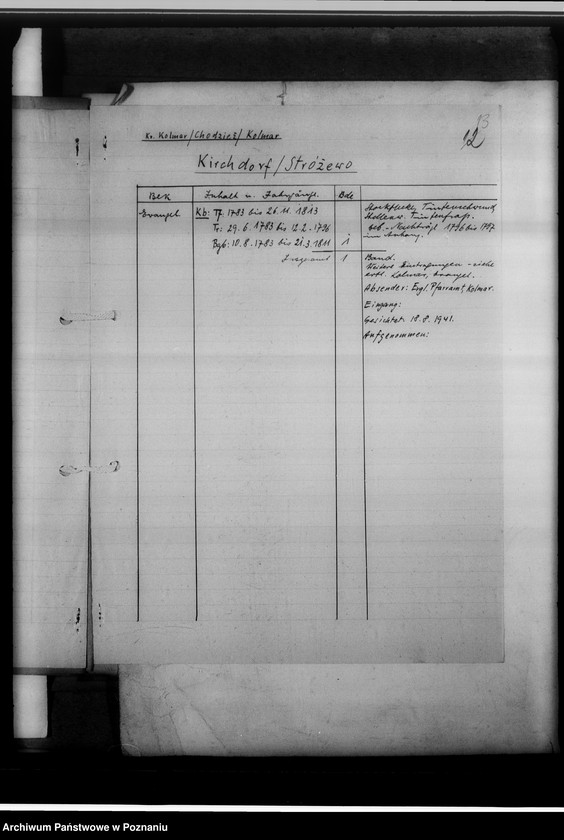 13
12
Kr. Kolmar/Chodzież/Kolmar
Kirchdorf/Stróżewo
Bek Inhalt u. Jahrgänge. Bde
Evangel Kb: Tf. 1783 bis 26.11.1813
Tr: 29.6.1783 bis 12.2.1796
Bgb: 10.8.1783 bis 21.3.1811 1
Insgesamt 1
Stockflecke, Tintenschwund,
Stellenw. Tintenfraß.
geb.-Nachträge 1796 bis 1797
im Anhang.
Band.
Weitere Eintragungen - siehe
Kolmar, evangel.
Absender: Evgl. Pfarramt, Kolmar.
Eingang:
Gesichtet: 18.8.1941.
Aufgenommen:
Archiwum Państwowe w Poznaniu